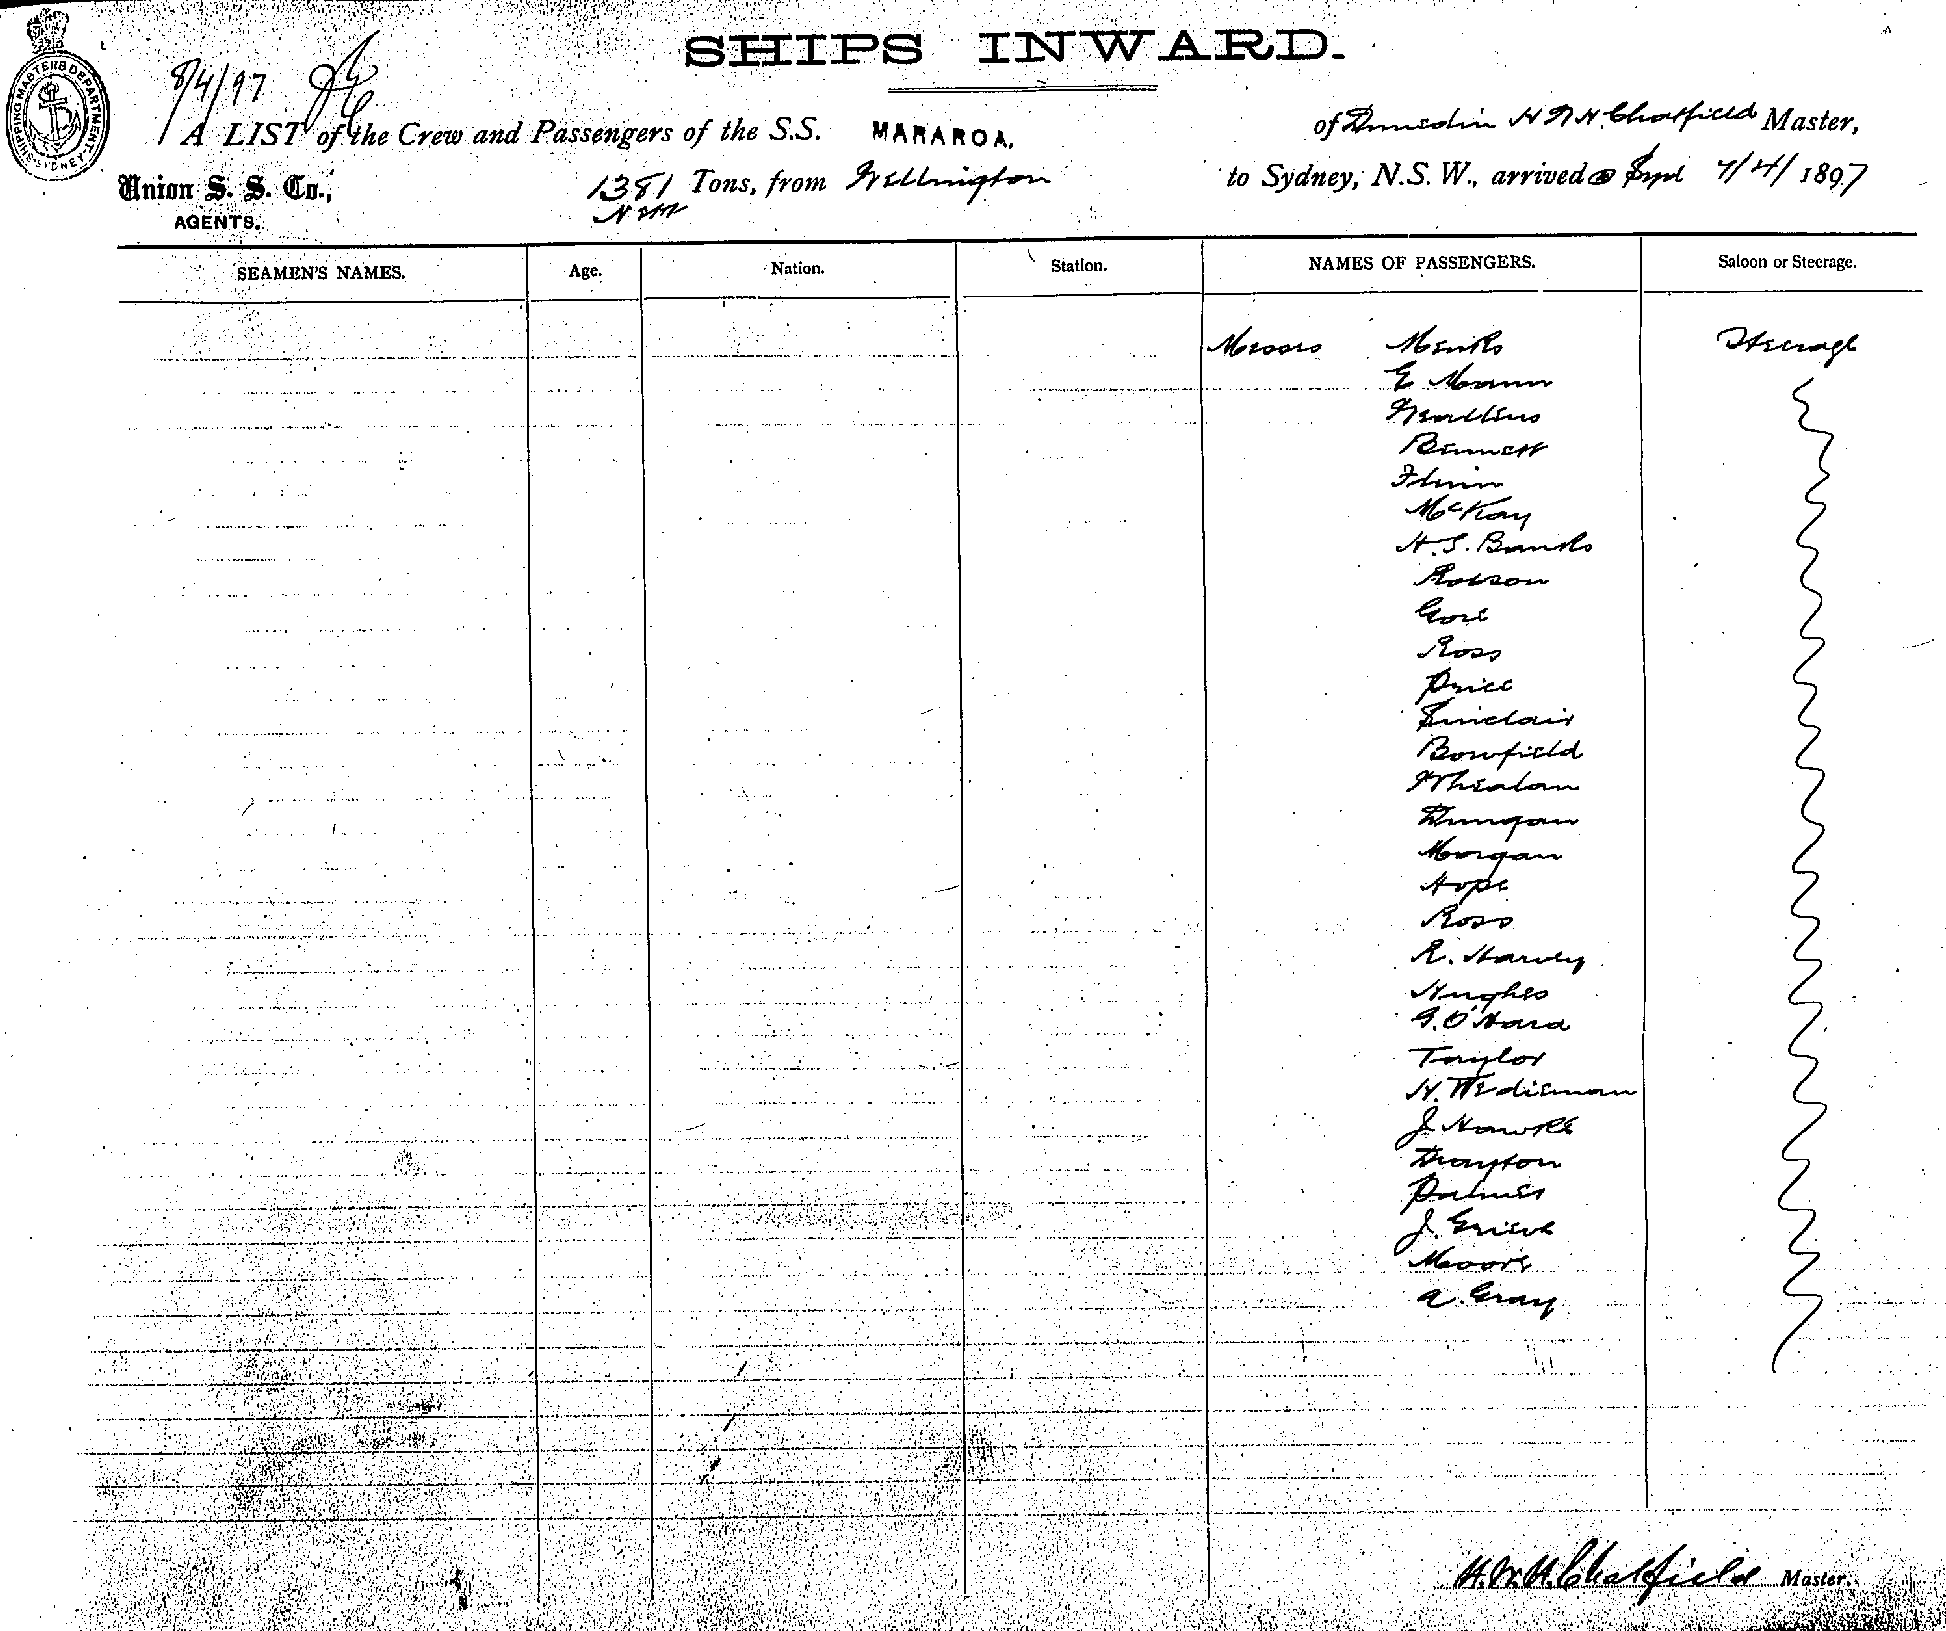 SHIPS INWARD.
SHIPPING MASTERS DEPARTMENT SYDNEY
8/4/97
A LIST of the Crew and Passengers of the S.S. MARAROA, of Dunedin H W H Chatfield Master,
Union S. S. Co., AGENTS. 1381 Tons, from Wellington to Sydney, N.S.W., arrived 7/4/1897
Nett
SEAMEN'S NAMES. Age. Nation. Station. NAMES OF PASSENGERS. Saloon or Steerage.
Messrs Menks Steerage
E Mann
Bennett
Flinn
McKay
H. S. Banks
Robson
Gore
Ross
Price
Sinclair
Bowfield
Whealan
Dungan
Morgan
Hope
Ross
R. Harvey
Hughes
G. O'Hara
Taylor
H. Wedisman
J. Hawke
Drayton
Palmer
J. Grieve
Moore
A. Gray
H.W.H. Chatfield Master.